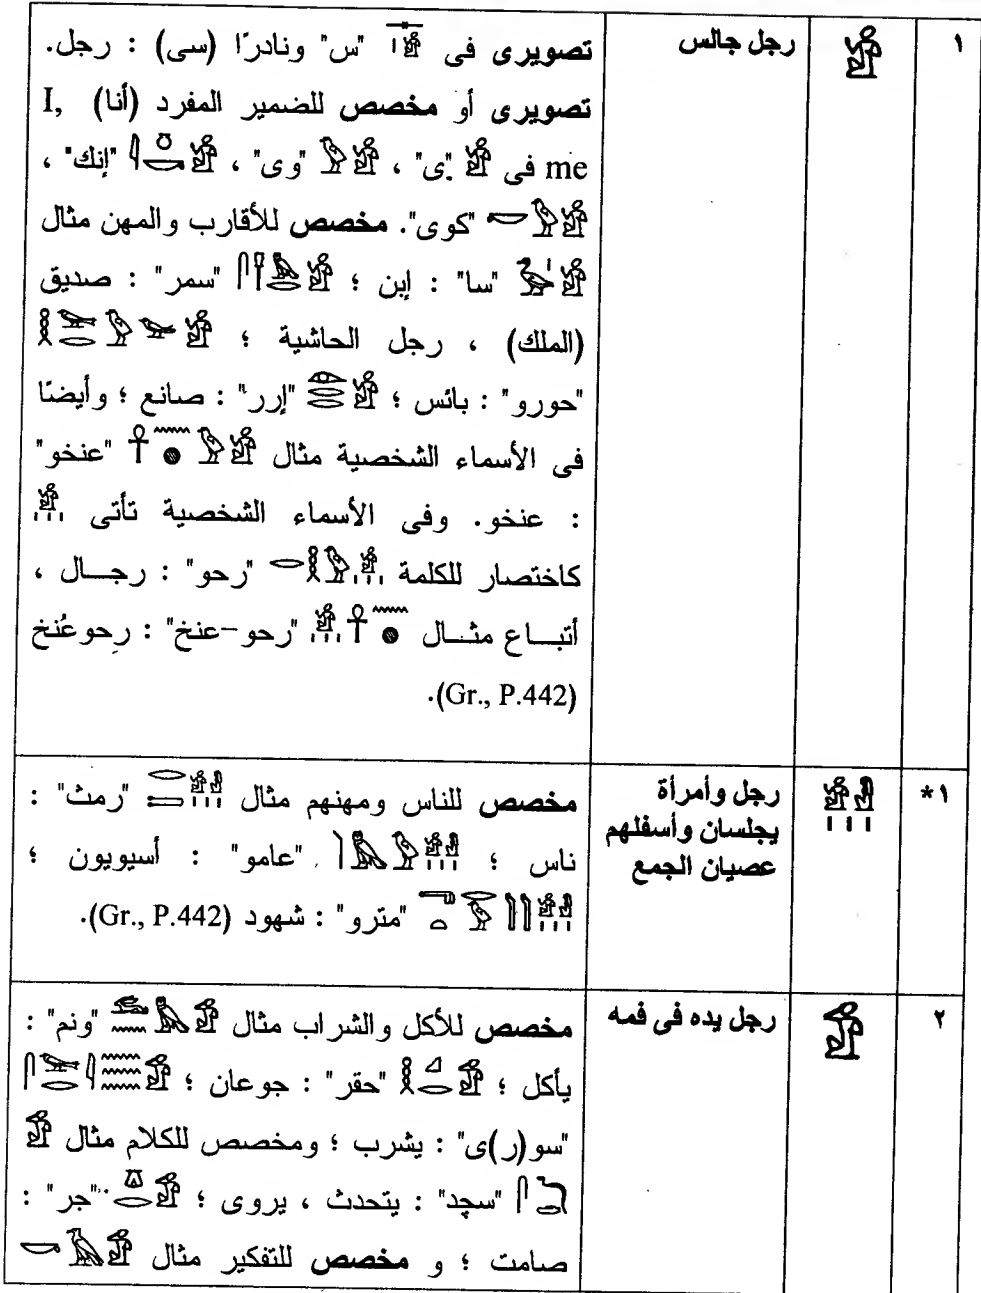 ١
رجل جالس
تصويرى فى 𓊃𓀀𓏤 "س" ونادرًا (سى) : رجل.
تصويرى أو مخصص للضمير المفرد (أنا) I,
me فى 𓀀 "ى" ، 𓅱𓀀 "وى" ، 𓇋𓏌𓎡𓀀 "إنك" ،
𓎡𓅱𓀀 "كوى". مخصص للأقارب والمهن مثال
𓅭𓀀 "سا" : إبن ؛ 𓋴𓌸𓅓𓂋𓀀 "سمر" : صديق
(الملك) ، رجل الحاشية ؛ 𓎛𓅨𓂋𓅱𓅪𓀀
"حورو" : بائس ؛ 𓁹𓂋𓂋𓀀 "إرر" : صانع ؛ وأيضًا
فى الأسماء الشخصية مثال 𓋹𓈖𓐍𓅱𓀀 "عنخو"
: عنخو. وفى الأسماء الشخصية تأتى 𓀀𓏪
كاختصار للكلمة 𓂋𓎛𓅱𓀀𓏪 "رحو" : رجال ،
أتباع مثال 𓀀𓏪𓋹𓈖𓐍 "رحو-عنخ" : رحوعُنخ
(Gr., P.442).
١*
رجل وأمرأة
يجلسان وأسفلهم
عصيان الجمع
مخصص للناس ومهنهم مثال 𓂋𓍿𓀀𓁐𓏪 "رمث" :
ناس ؛ 𓌙𓅓𓅱𓀀𓁐𓏪 "عامو" : أسيويون ؛
𓂸𓏏𓂋𓅱𓇋𓇋𓀀𓁐𓏪 "مترو" : شهود (Gr., P.442).
٢
رجل يده فى فمه
مخصص للأكل والشراب مثال 𓃹𓈖𓅓𓀁 "ونم" :
يأكل ؛ 𓎛𓈎𓂋𓀁 "حقر" : جوعان ؛ 𓋴𓅨𓂋𓇋𓈗𓀁
"سو(ر)ى" : يشرب ؛ ومخصص للكلام مثال 𓀁
𓋴𓆓𓂧 "سچد" : يتحدث ، يروى ؛ 𓎼𓂋𓀁 "جر" :
صامت ؛ و مخصص للتفكير مثال 𓎡𓄿𓀁